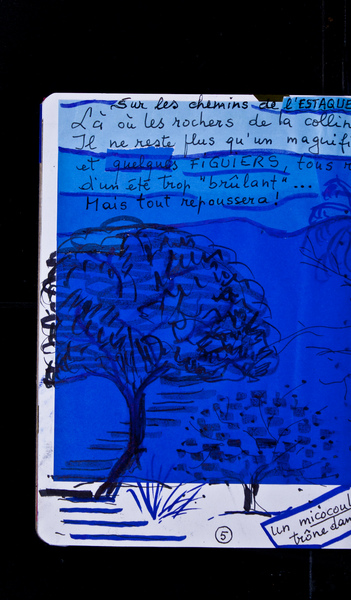 Sur les chemins de l'ESTAQUE
Là où les rochers de la collin
Il ne reste plus qu'un magnifi
et quelques FIGUIERS, tous r
d'un été trop "brûlant"...
Mais tout repoussera!
un micocoul
trône dan
5